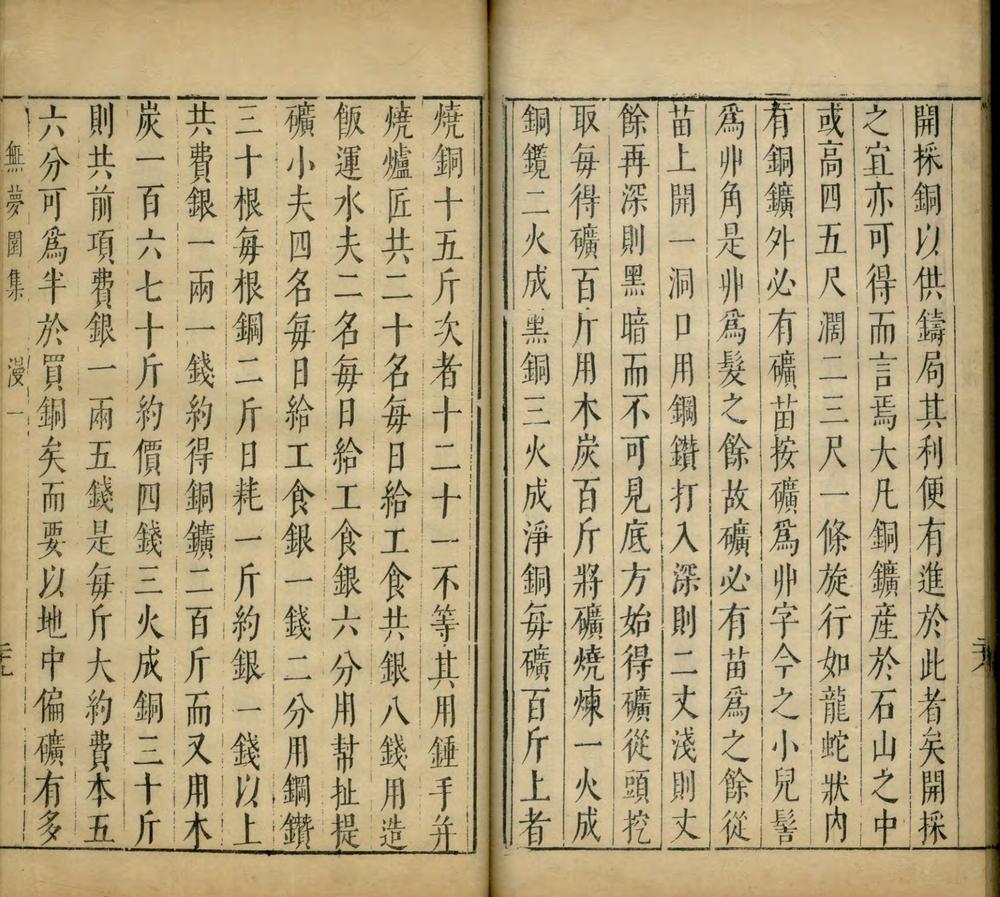 開採銅以供鑄局其利便有進於此者矣開採
之宜亦可得而言焉大凡銅鑛産於石山之中
或高四五尺濶二三尺一條旋行如龍蛇狀内
有銅鑛外必有礦苗按礦爲丱字今之小兒髻
爲丱角是丱爲髮之餘故礦必有苗爲之餘從
苗上開一洞口用鋼鑽打入深則二丈淺則丈
餘再深則黑暗而不可見底方始得礦從頭挖
取每得礦百斤用木炭百斤將礦燒煉一火成
銅鑬二火成黑銅三火成淨銅每礦百斤上者
燒銅十五斤次者十二十一不等其用錘手并
燒爐匠共二十名每日給工食共銀八錢用造
飯運水夫二名每日給工食銀六分用幫扯提
礦小夫四名每日給工食銀一錢二分用鋼鑽
三十根每根鋼二斤日耗一斤約銀一錢以上
共費銀一兩一錢約得銅鑛二百斤而又用木
炭一百六七十斤約價四錢三火成銅三十斤
則共前項費銀一兩五錢是每斤大約費本五
六分可爲半於買銅矣而要以地中偏礦有多
無夢園集 漫一